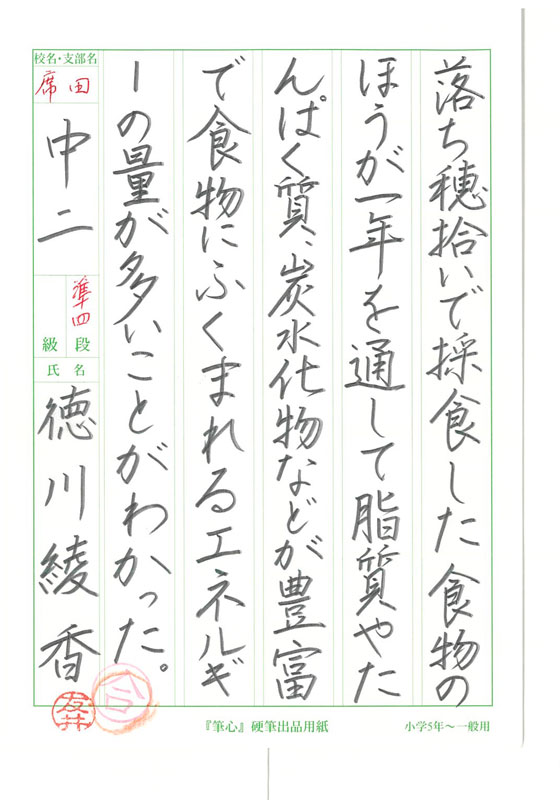 落ち穂拾いで採食した食物の
ほうが一年を通して脂質やた
んぱく質、炭水化物などが豊富
で食物にふくまれるエネルギ
ーの量が多いことがわかった。
校名・支部名
席田
中二
準四
段級
氏名
徳川綾香
合
友井
『筆心』硬筆出品用紙
小学5年～一般用